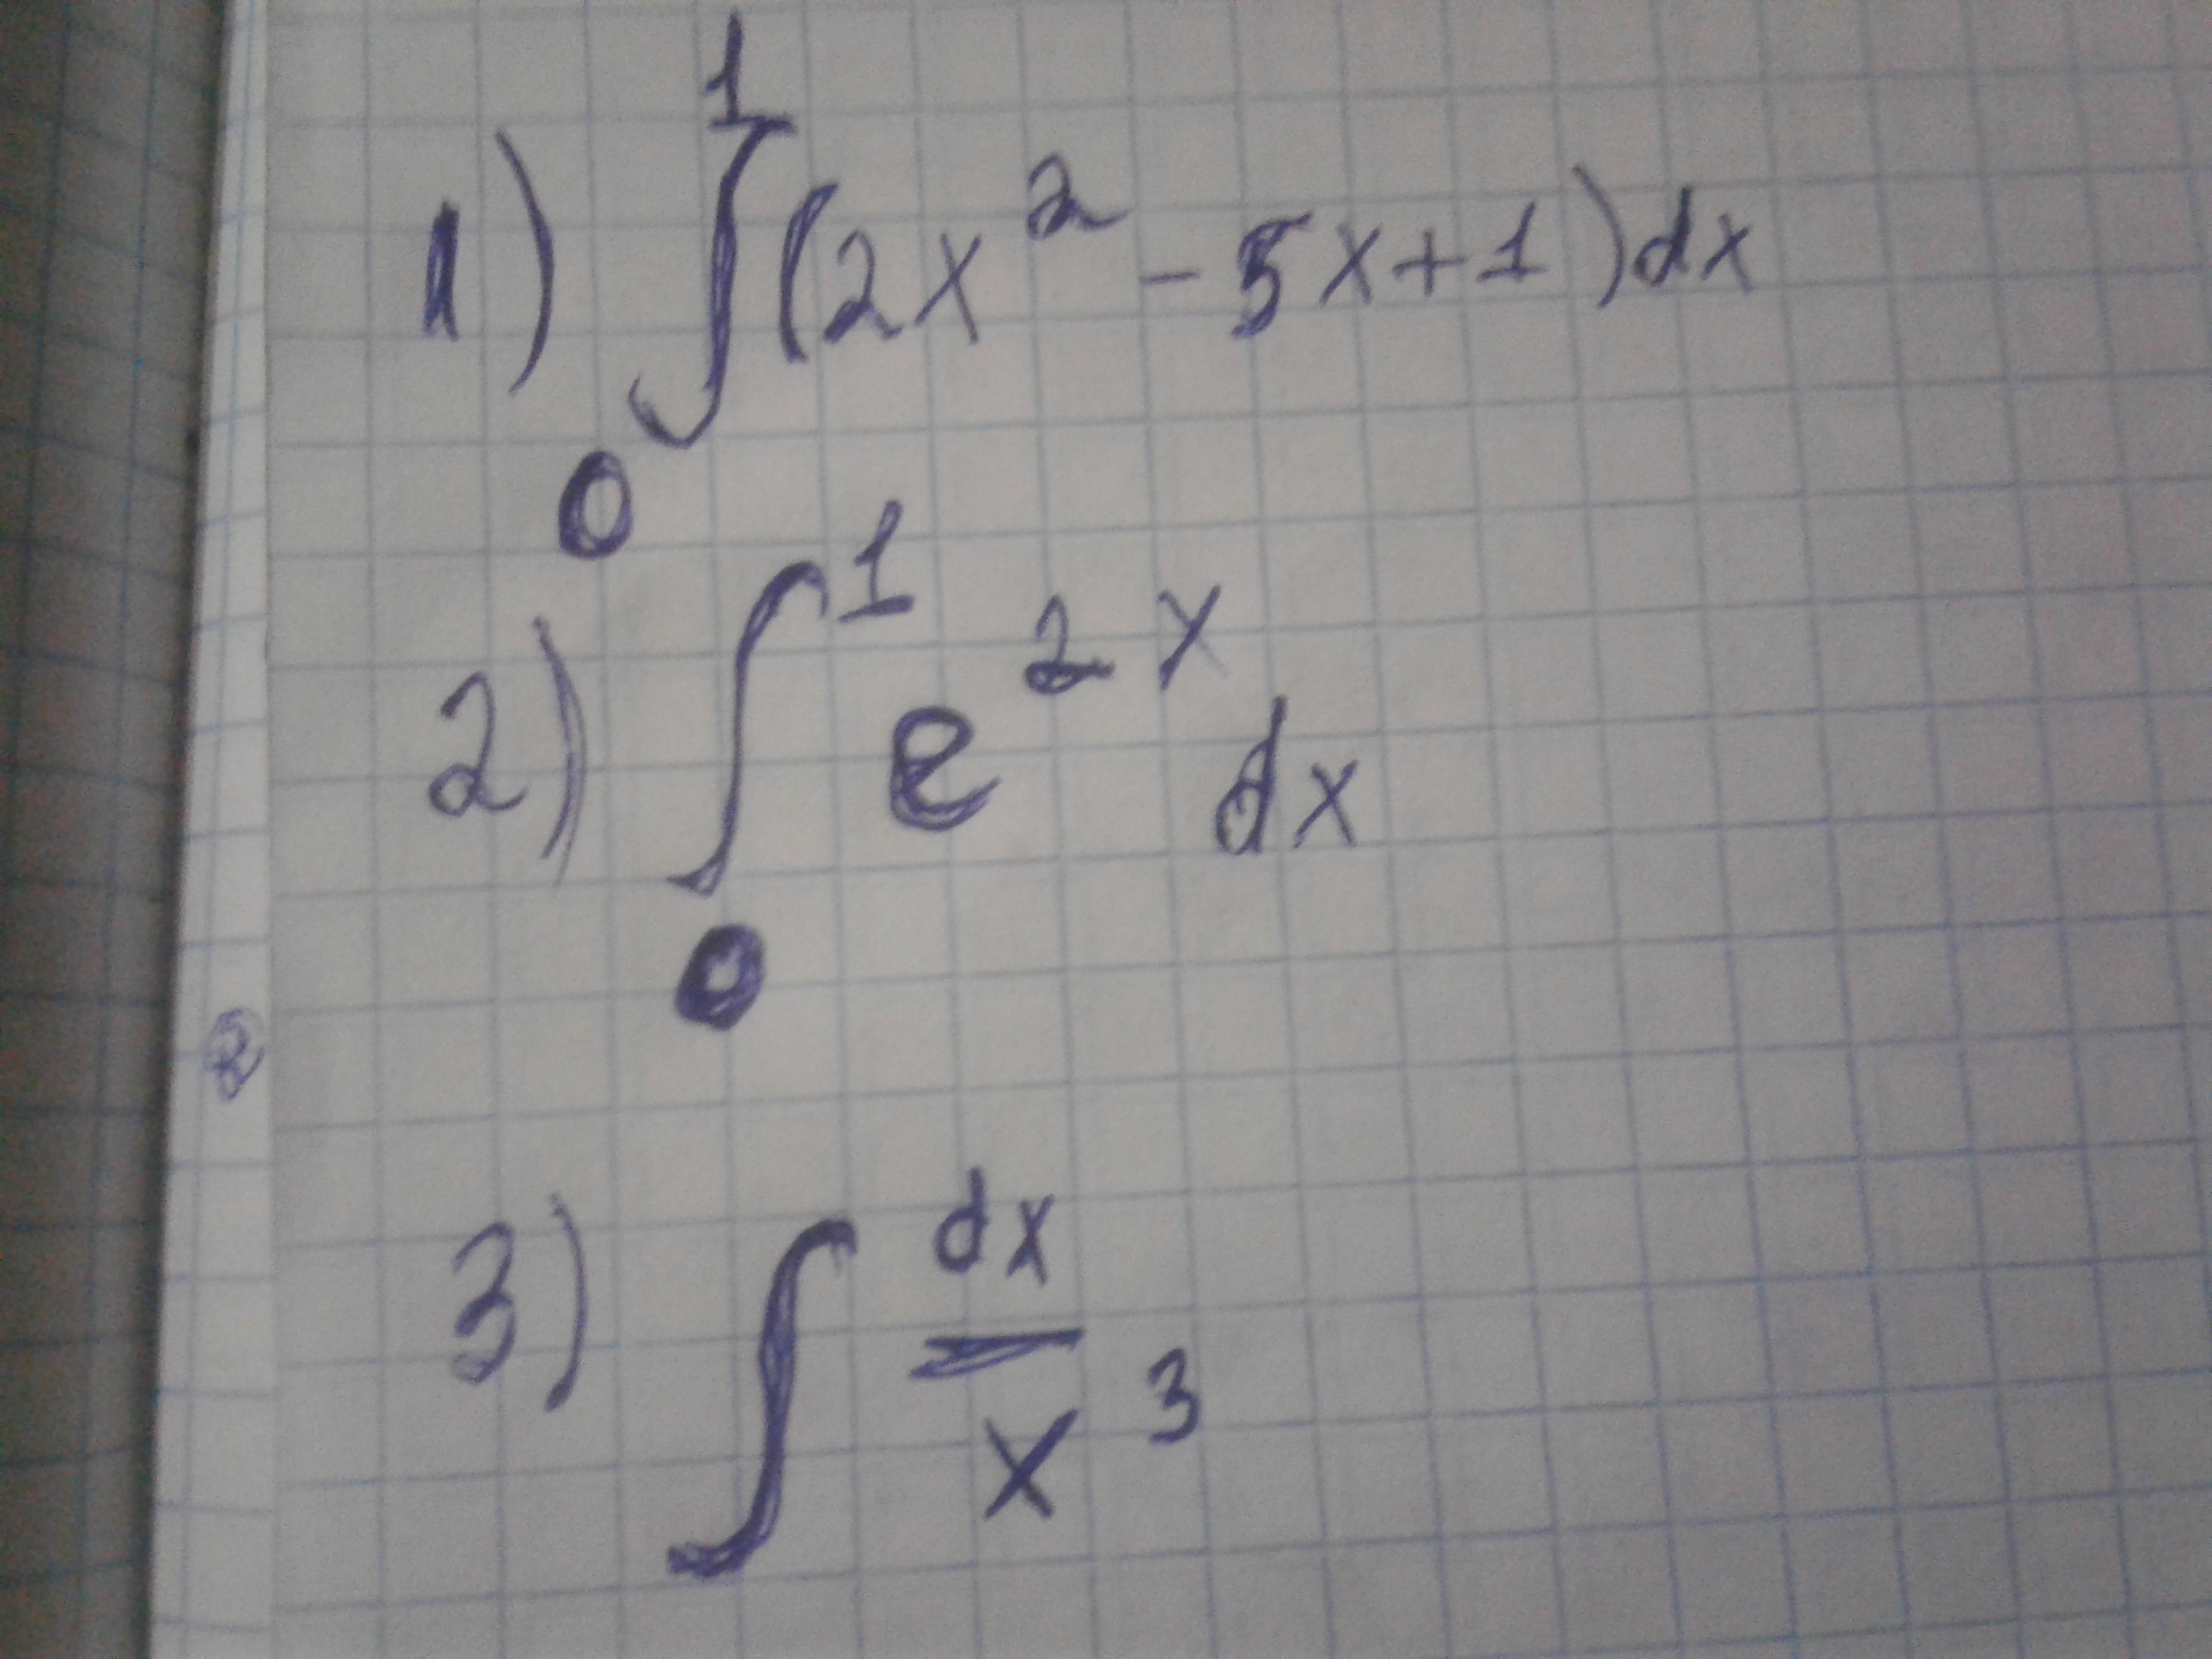 1) ∫₀¹ (2x² - 5x + 1)dx
2) ∫₀¹ e²ˣ dx
3) ∫ dx/x³